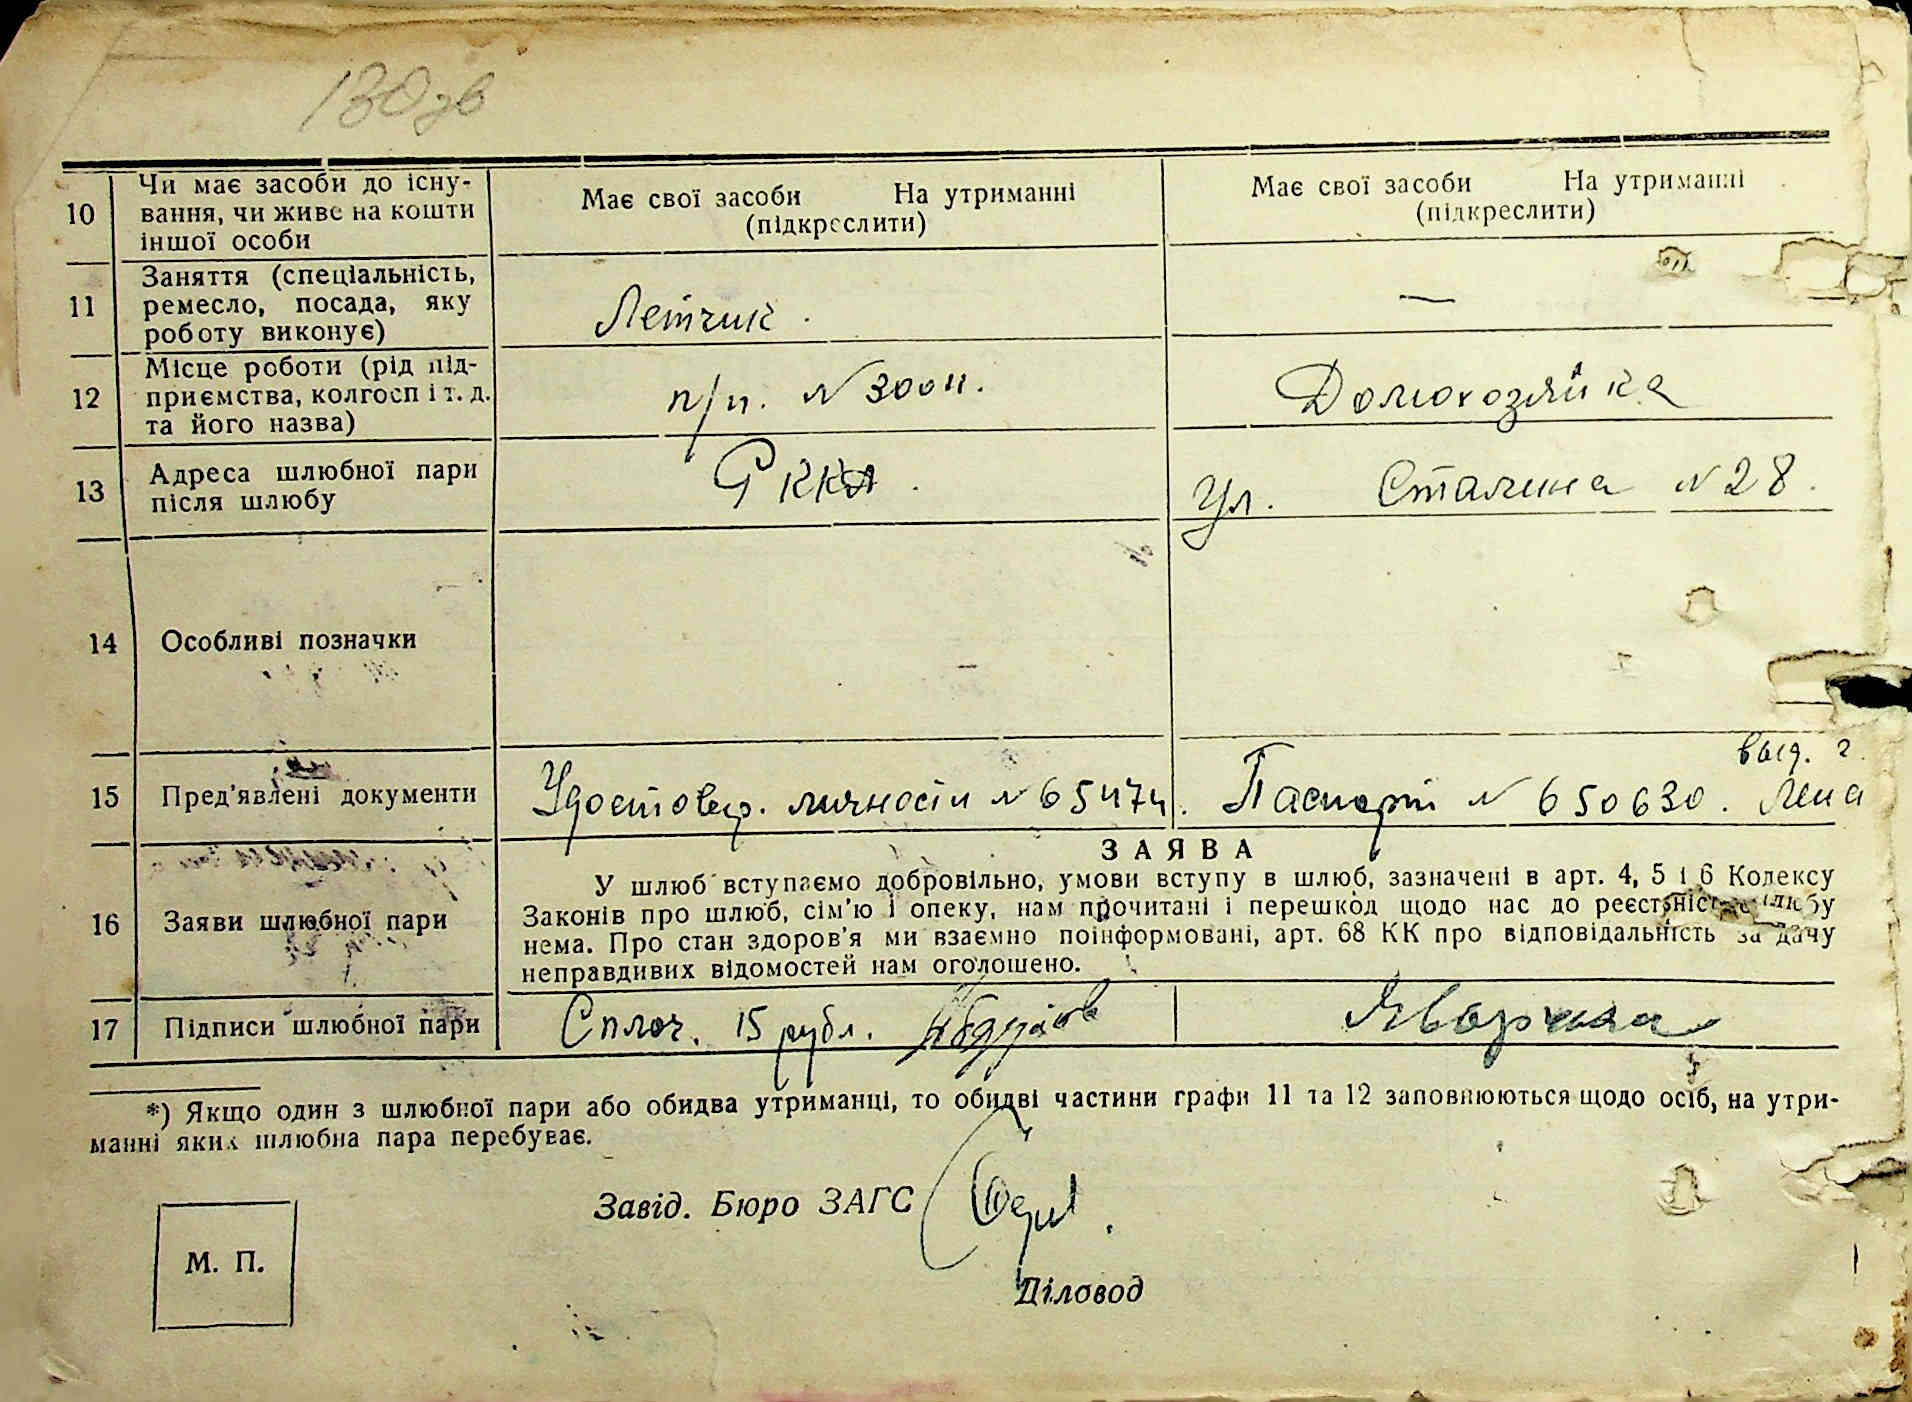 130 зв
10
Чи має засоби до існу-
вання, чи живе на кошти
іншої особи
Має свої засоби На утриманні
(підкреслити)
Має свої засоби На утриманні
(підкреслити)
11
Заняття (спеціальність,
ремесло, посада, яку
роботу виконує)
Летчик.
—
12
Місце роботи (рід під-
приємства, колгосп і т. д.
та його назва)
п/п. № 30011.
Домохозяйка
13
Адреса шлюбної пари
після шлюбу
РККА.
Ул. Сталина № 28.
14
Особливі позначки
15
Пред'явлені документи
Удостовер. личности №
Паспорт № 650630.
выд. г.
16
Заяви шлюбної пари
ЗАЯВА
У шлюб вступаємо добровільно, умови вступу в шлюб, зазначені в арт. 4, 5 і 6 Кодексу
Законів про шлюб, сім'ю і опеку, нам прочитані і перешкод щодо нас до шлюбу
нема. Про стан здоров'я ми взаємно поінформовані, арт. 68 КК про відповідальність за дачу
неправдивих відомостей нам оголошено.
17
Підписи шлюбної пари
Сплоч. 15 рубл.
*) Якщо один з шлюбної пари або обидва утриманці, то обидві частини графи 11 та 12 заповнюються щодо осіб, на утри-
манні яких шлюбна пара перебуває.
Завід. Бюро ЗАГС
М. П.
Діловод